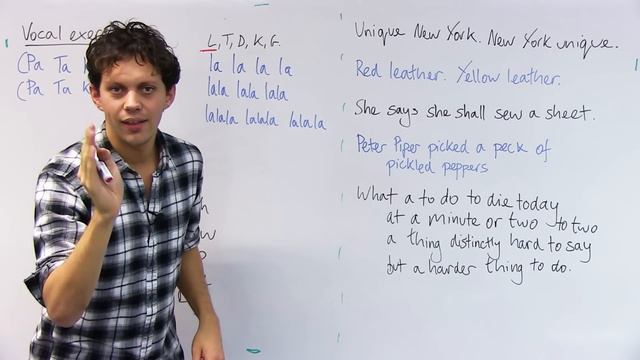 Vocal exe
(Pa Ta
(Pa Ta k
L, T, D, K, G.
la la la la
lala lala lala
lalala lalala lalala
Unique New York. New York unique.
Red leather. Yellow leather.
She says she shall sew a sheet.
Peter Piper picked a peck of
pickled peppers
What a to do to die today
at a minute or two to two
a thing distinctly hard to say
but a harder thing to do.